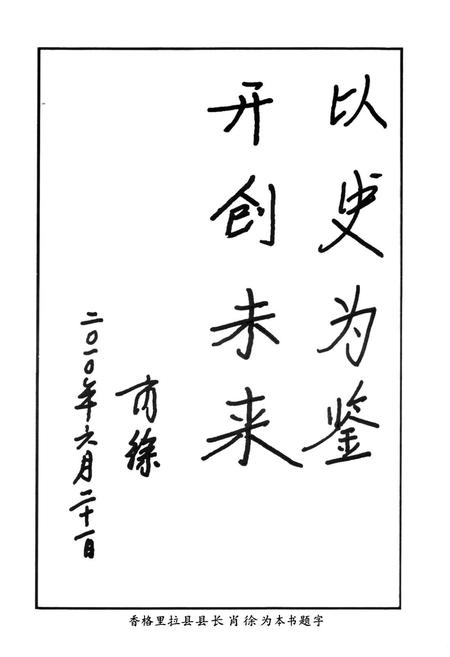 以史为鉴
开创未来
肖徐
二〇一〇年六月二十一日
香格里拉县县长肖徐为本书题字